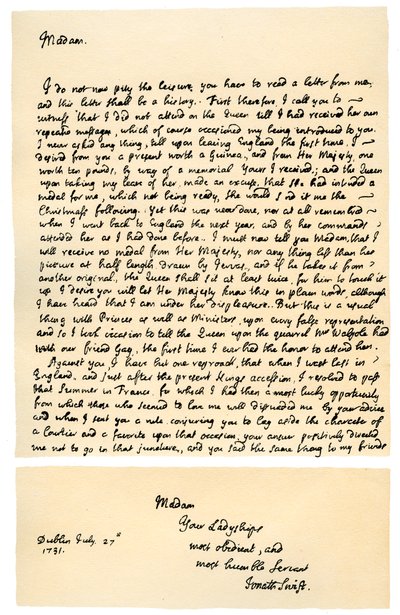 Madam.
I do not now pity the leisure you have to read a letter from me,
and this letter shall be a history. First therefore, I call you to
witness that I did not attend on the Queen till I had received her own
repeated messages, which of course occasioned my being introduced to you.
I never asked any thing, till upon leaving England the first time, I
desired from you a present worth a Guinea, and from Her Majesty, one
worth ten pounds, by way of a memorial Yours I received; and the Queen
upon taking my leave of her, made an excuse, that she had intended a
medal for me, which not being ready, she would send it me the
Christmass following. Yet this was never done, nor at all remembred
when I went back to England the next year, and by her commands
attended her as I had done before. I must now tell you Madam, that I
will receive no medal from Her Majesty, nor any thing less than her
picture at half length drawn by Jervas, and if he takes it from
another original, the Queen shall sit at least twice, for him to touch it
up I desire you will let Her Majesty know this in plain words, although
I have heard that I am under her displeasure. But this is a usual
thing with Princes as well as Ministers, upon every false representation
and so I took occasion to tell the Queen upon the quarrel Mr Walpole had
with our friend Gay, the first time I ever had the honor to attend her.
Against you I have but one reproach, that when I was last in
England, and just after the present Kings accession, I resolved to pass
that Summer in France, for which I had then a most lucky opportunity
from which those who seemed to love me well disuaded me by your advice
and when I sent you a note conjuring you to lay aside the character of
a Courtier and a favorite upon that occasion, your answer positively directed
me not to go in that juncture, and you said the same thing to my friends
Madam
Your Ladyships
most obedient, and
most humble Servant
Jonath Swift.
Dublin July. 27th
1731.